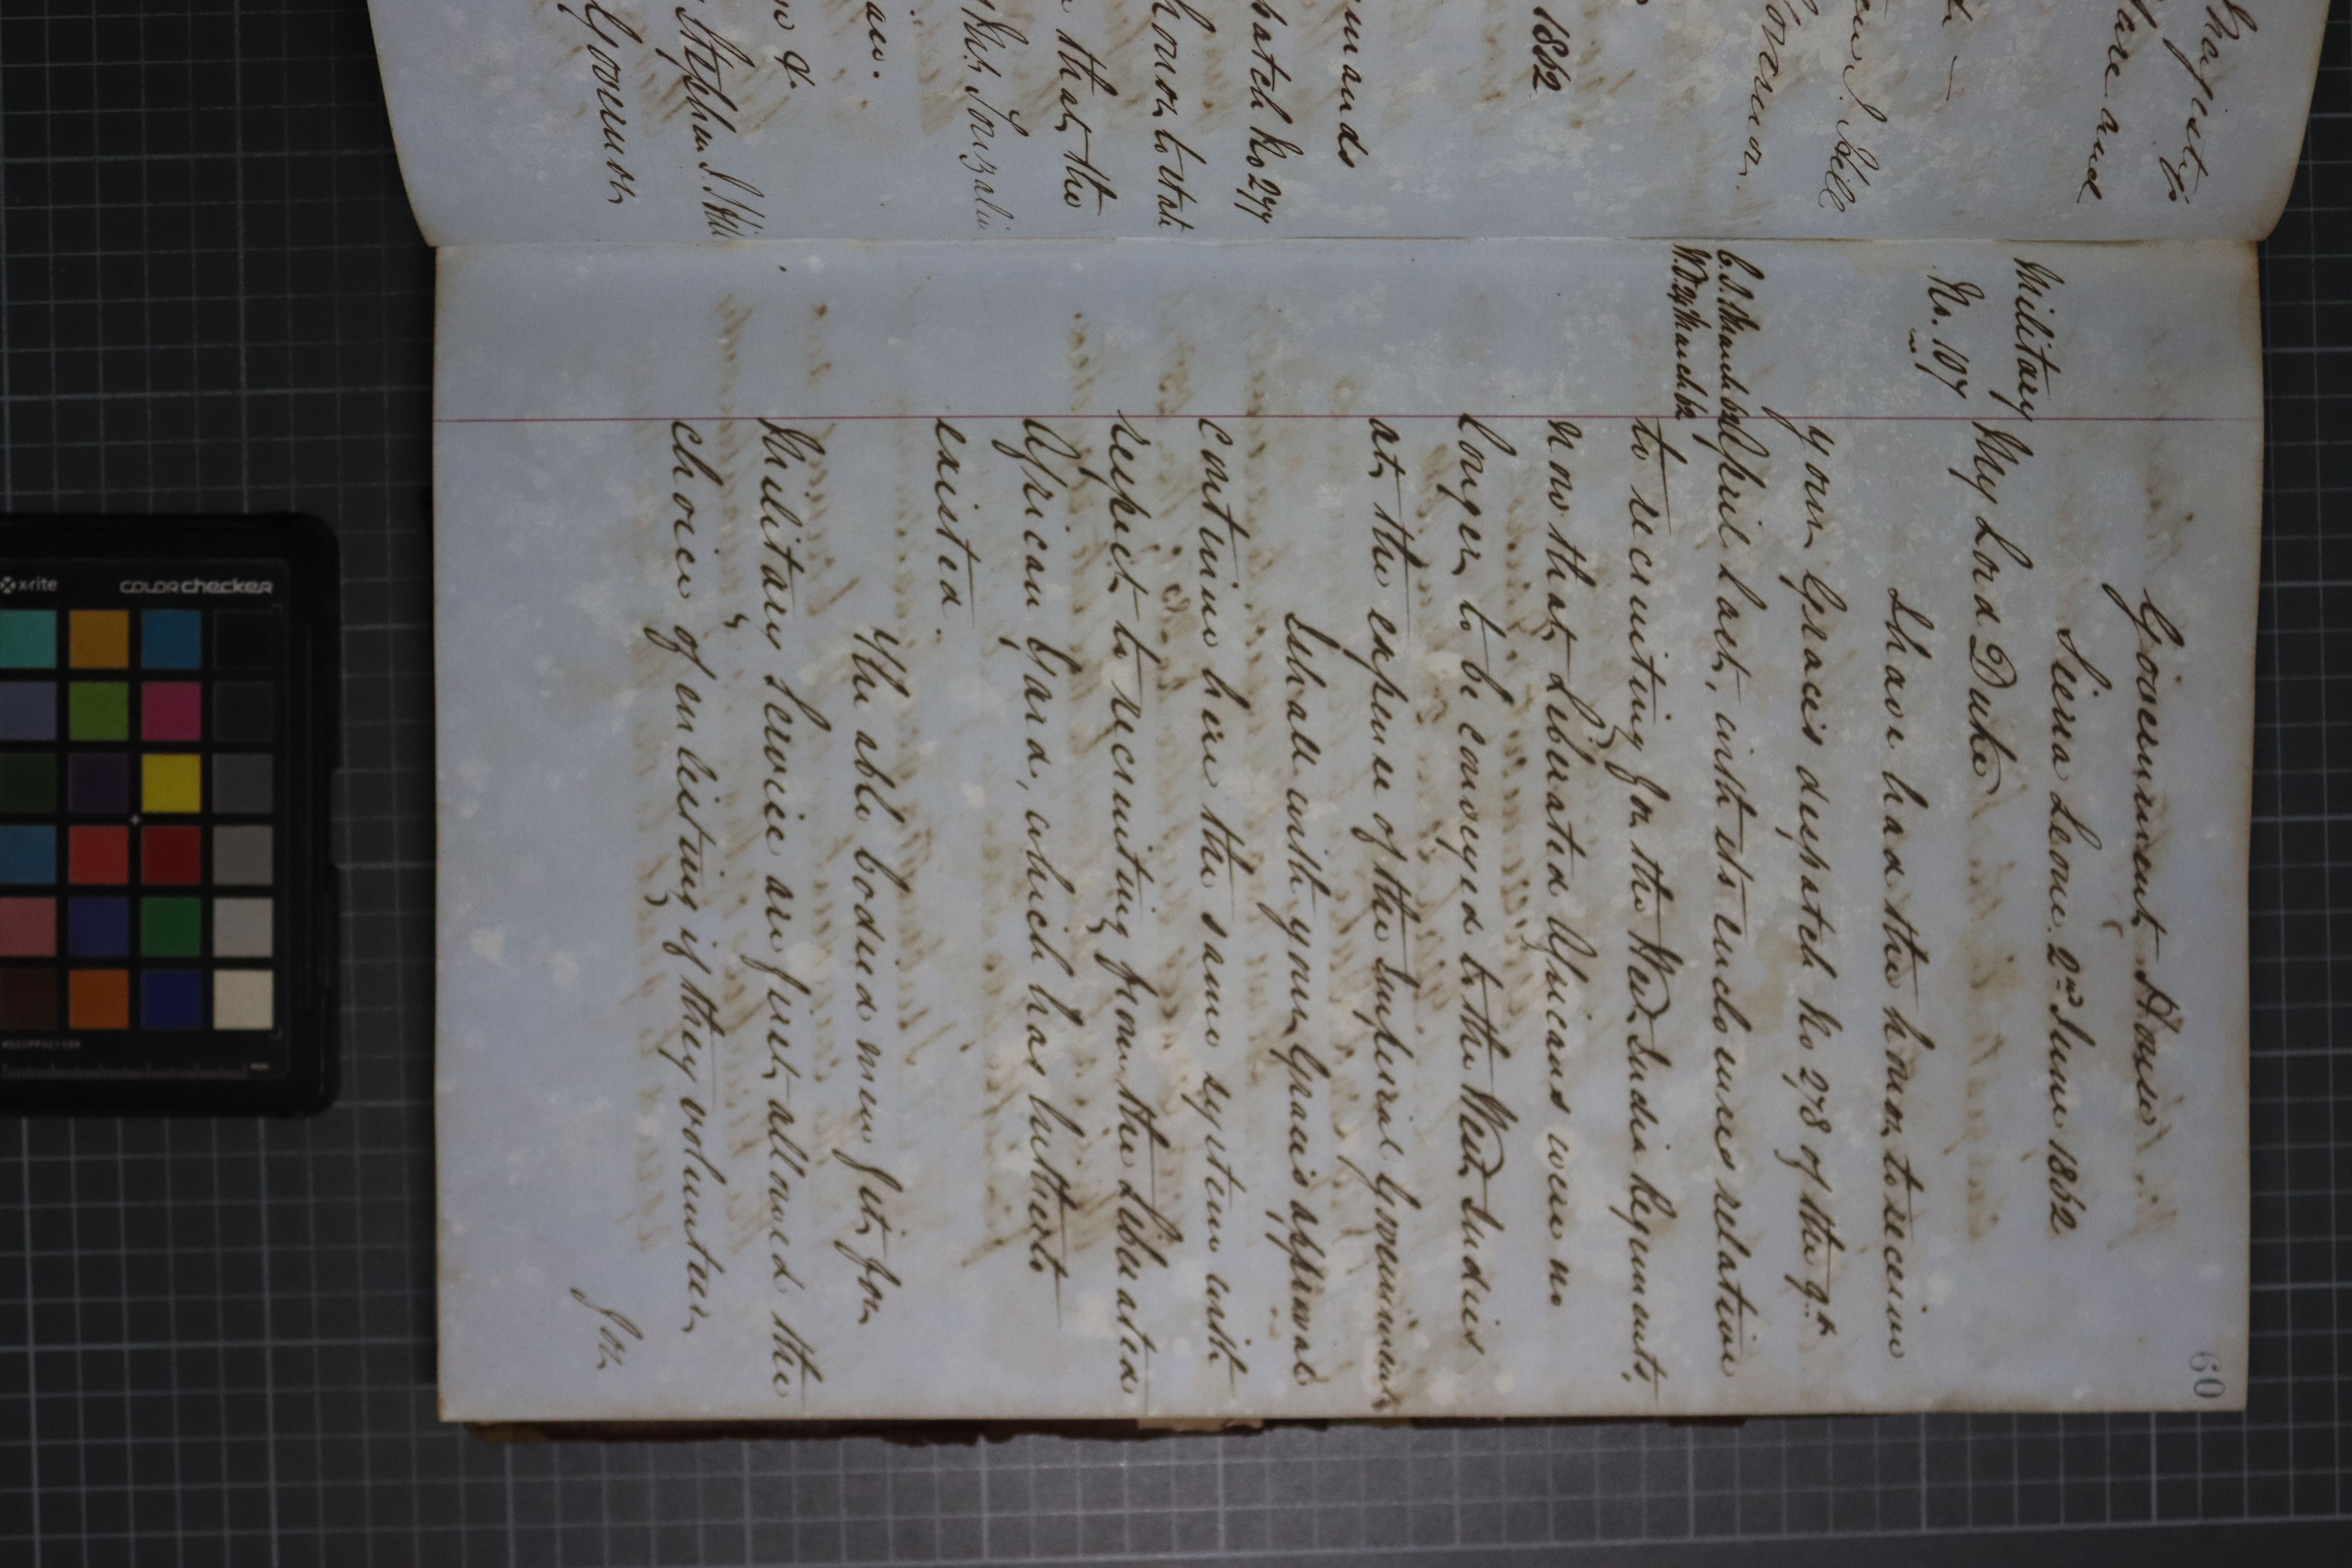 Magistrate
are and
1862
mands
patch No 277
honor to state
that the
&
Stephen J Hill
Governor
60
Government House
Sierra Leone. 2nd June 1862
Military
No. 107
My Lord Duke
I have had the honor to receive
your Grace's despatch No 278 of the 9th
C.S. March 62
April last, with its enclosures relative
W.O. 27 March 62
to recruiting for the West India Regiments,
now that Liberated Africans were no
longer to be conveyed to the West Indies
at the expense of the Imperial Government
I shall with your Grace's approval
continue here the same system with
respect to recruiting from the Liberated
African Yard, which has hitherto
existed.
The able bodied men fit for
Military Service are first allowed the
choice of enlisting if they volunteer
for
x-rite
colorchecker